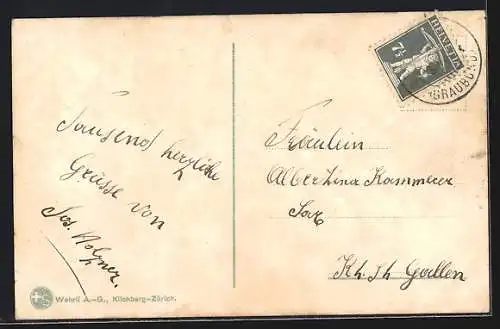 Tausend herzliche
Grüsse von
Jos. Holzner.
Wehrli A.-G., Kilchberg-Zürich.
7½
HELVETIA
(GRAUBÜND
Fräulein
Albertina Kammerer
Kt. St. Gallen